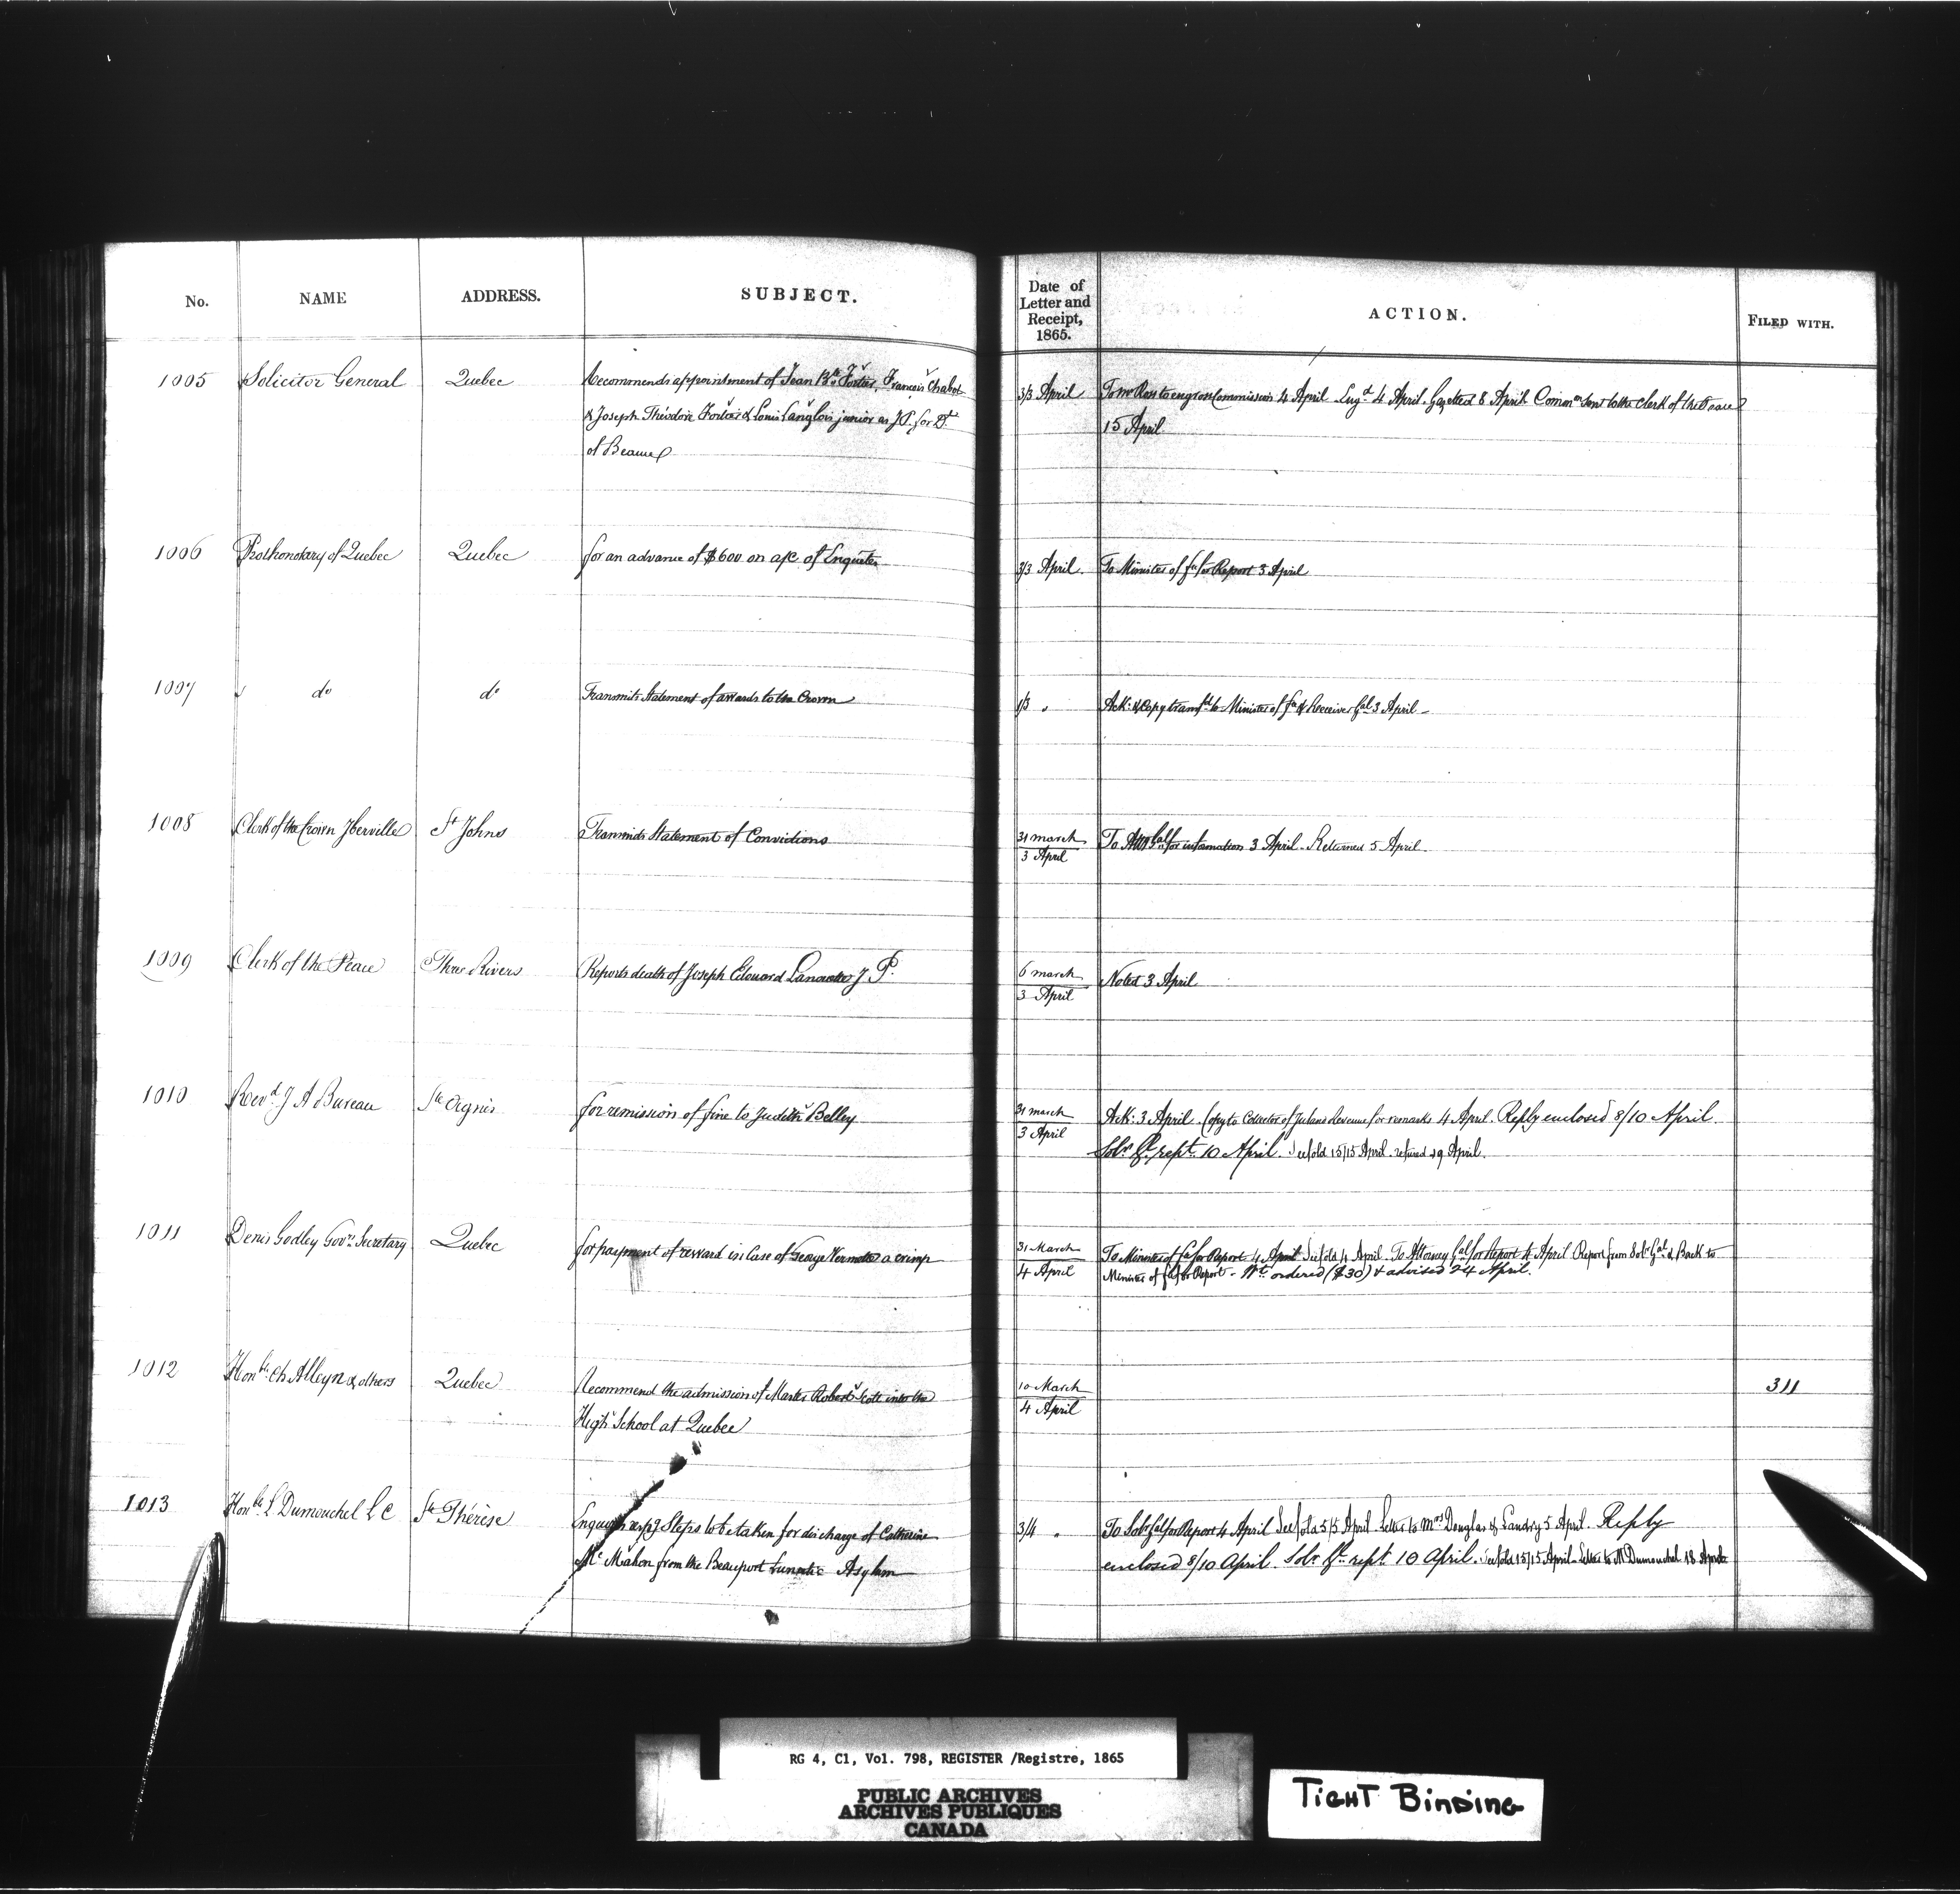 No. NAME ADDRESS. SUBJECT. Date of Letter and Receipt, 1865. ACTION. FILED WITH.
1005 Solicitor General Quebec Recommends appointment of Jean Bte Fortier, Francois Chabot
& Joseph Theodore Fortier & Louis Langlois junior as J.P. for Dt
of Beauce
3/3 April To Mr Ross to engross Commission 4 April Engd 4 April. Gazetted 8 April Common sent to the Clerk of the Peace
15 April
1006 Prothonotary of Quebec Quebec for an advance of $600 on a/c of Enquetes
3/3 April. To Minister of fce for Report 3 April
1007 do do Transmits Statement of awards to the Crown
1/3 " Ack: & Copy transfd to Minister of fce & Receiver Gal 3 April
1008 Clerk of the Crown Iberville St Johns Transmits Statement of Convictions
31 march
3 April
To Atty Gal for information 3 April. Returned 5 April.
1009 Clerk of the Peace Three Rivers Reports death of Joseph Edouard J P.
6 march
3 April
Noted 3 April
1010 Revd J A Bureau Ste Agnes for remission of fine to Judith Belley
31 march
3 April
Ack: 3 April. Copy to Collector of Inland Revenue for remarks 4 April. Reply enclosed 8/10 April.
Solr Gl rept. 10 April. See fold 15/15 April. refused 19 April.
1011 Denis Godley Govrs Secretary Quebec for payment of reward in Case of George a crimp
31 March
4 April
To Minister of fce for Report 4 April See fold 4 April. To Attorney Gal for Report 4 April Report from Solr Gal & Back to
Minister of fce for Report - Wt ordered ($30) & advised 24 April.
1012 Honble Ch Alleyn & others Quebec Recommend the admission of Master Robert Scott into the
High School at Quebec
10 March
4 April
311
1013 Honble L Dumouchel L C Ste Thérèse Enquires respg Steps to be taken for discharge of Catherine
Mc Mahon from the Beauport Lunatic Asylum
3/4 " To Solr Gal for Report 4 April See fold 5/5 April. Letter to Mrs Douglas & Landry 5 April. Reply
enclosed 8/10 April. Solr Gl rept 10 April. See fold 15/15 April Letter to Mr Dumouchel 18 April
RG 4, C1, Vol. 798, REGISTER /Registre, 1865
PUBLIC ARCHIVES
ARCHIVES PUBLIQUES
CANADA
TIGHT BINDING